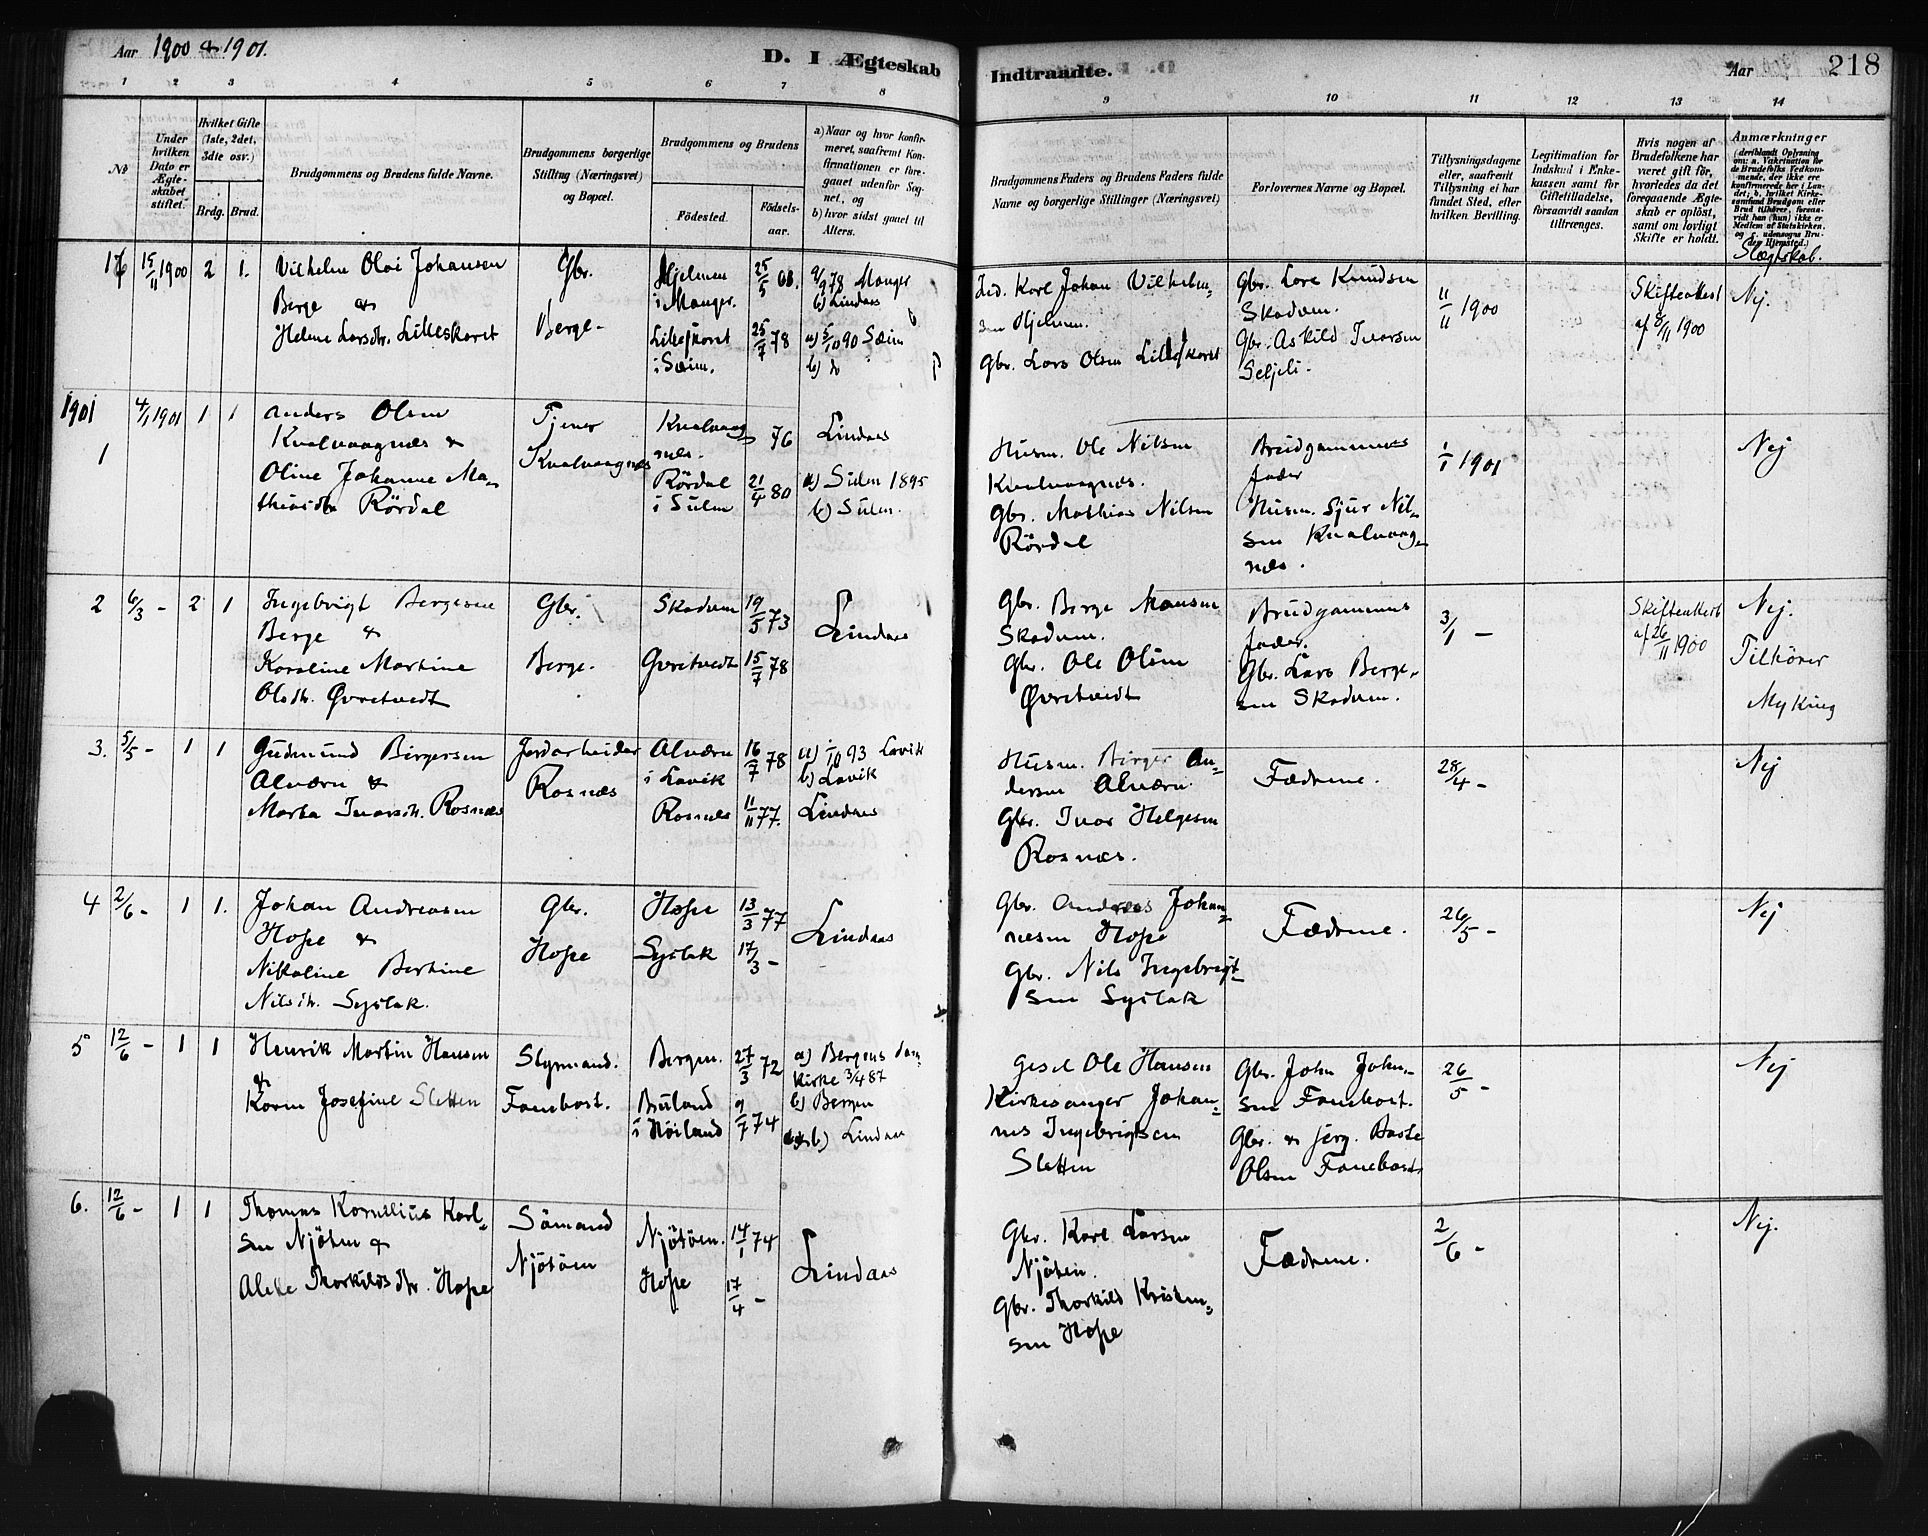 Aar 1900 & 1901.
D. I Ægteskab
Indtraadte.
Aar 218
1 2 3 4 5 6 7 8 9 10 11 12 13 14
No
Under hvilken Dato er Ægteskabet stiftet.
Hvilket Gifte (1ste, 2det, 3die osv.)
Brdg. Brud.
Brudgommens og Brudens fulde Navne.
Brudgommens borgerlige Stilling (Næringsvei) og Bopæl.
Brudgommens og Brudens
Fødested. Fødselsaar.
a) Naar og hvor konfirmeret, saafremt Konfirmationen er foregaaet udenfor Sognet, og
b) hvor sidst gaaet til Alters.
Brudgommens Faders og Brudens Faders fulde Navne og borgerlige Stillinger (Næringsvei)
Forlovernes Navne og Bopæl.
Tillysningsdagene eller, saafremt Tillysning ei har fundet Sted, efter hvilken Bevilling.
Legitimation for Indskud i Enkekassen samt for Giftetilladelse, forsaavidt saadan tiltrænges.
Hvis nogen af Brudefolkene har været gift før, hvorledes da det foregaaende Ægteskab er opløst, samt om lovligt Skifte er holdt.
Anmærkninger
Slægtskab.
16 15/11 1900 2 1.
Vilhelm Olai Johansen
Berge &
Helene Larsdtr. Lilleskaret
Gbr.
Berge
Hjelmen
i Manger.
25/5
Lilleskaret
i Sæim.
25/7 78
78 Manger
b) Lindaas
a) 5/10 90 Sæim
b) do
Karl Johan Vilhelm-
sen Hjelmen.
Gbr. Lars Olsen Lilleskaret
Gbr. Lars Knudsen
Skodum.
Gbr. Askild Ivarsen
Seljeli.
11/11 1900
Skifteattest
af 8/11 1900
Nej.
1901
1 4/1 1901 1 1
Anders Olsen
Kvalvaagnæs &
Oline Johanne Ma-
thiasdtr Rördal
Tjener
Kvalvaagnæs
Kvalvaag
næs. 76
Rördal
i Sulen
21/4 80
Lindaas
a) Sulen 1895
b) Sulen.
Husm. Ole Nilsen
Kvalvaagnæs.
Gbr. Mathias Nilsen
Rördal
Brudgommens
fader
Husm. Sjur Nil-
sen Kvalvaag-
næs.
1/1 1901
Nej
2 6/3 - 2 1
Ingebrigt Bergesen
Berge &
Karoline Martine
Olsdtr. Øvretvedt
Gbr.
Berge.
Skodum 19/5 73
Øvretvedt 15/7 78
Lindaas
Gbr. Berge Monsen
Skodum.
Gbr. Ole Olsen
Øvretvedt
Brudgommens
fader.
Gbr. Lars Berge-
sen Skodum.
3/1 -
Skifteattest
af 26/11 1900
Nej.
Tilhörer
Myking
3. 5/5 - 1 1
Gudmund Birgersen
Alværn &
Marta Ivarsdtr. Rosnæs
Jordarbeider
Rosnæs
Alværn
i Lavik
16/7 78
Rosnæs 11/11 77.
a) 1/10 93 Lavik
b) Lavik
Lindaas
Husm. Birger An-
dersen Alværn.
Gbr. Ivar Helgesen
Rosnæs.
Fædrene.
28/4 -
Nej
4 2/6 - 1 1.
Johan Andreasen
Hope &
Nikoline Bertine
Nilsdtr. Syslak.
Gbr.
Hope
Hope 13/3 77
Syslak 17/3 -
Lindaas
Gbr. Andreas Johan-
nesen Hope
Gbr. Nils Ingebrigt-
sen Syslak
Fædrene.
26/5 -
Nej
5 12/6 - 1 1
Henrik Martin Hansen
&
Karen Josefine Sletten
Styrmand.
Fanebost.
Bergen. 27/3 72
Bruland
i Höiland
9/7 74
a) Bergens dom
kirke 3/4 87
b) Bergen
b) Lindaas
Gesel Ole Hansen
Kirkesanger Johan-
nes Ingebrigtsen
Sletten
Gbr. John John-
sen Fanebost.
Gbr. &
Olsen Fanebost
26/5 -
Nej
6. 12/6 - 1 1
Thomas Kornelius Karl-
sen Njöten &
Alette Thorkildsdtr. Hope
Sömand
Njötöen
Njötöen. 14/1 74
Hope 17/4 -
Lindaas
Gbr. Karl Larsen
Njöten.
Gbr. Thorkild Kristen-
sen Hope
Fædrene.
2/6 -
Nej.